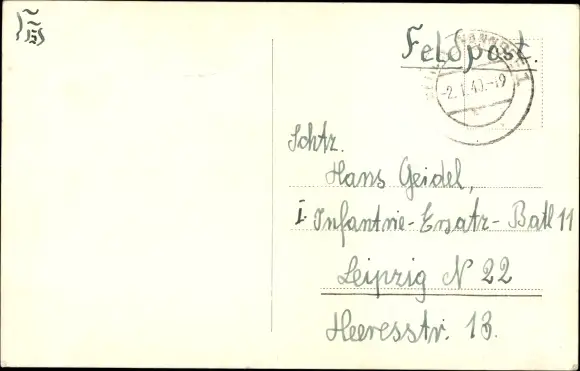 Feldpost.
-2.1.40.-19
Schtz.
Hans Geidel,
I. Infantrie-Ersatz-Batl 11
Leipzig N 22
Heeresstr. 13.